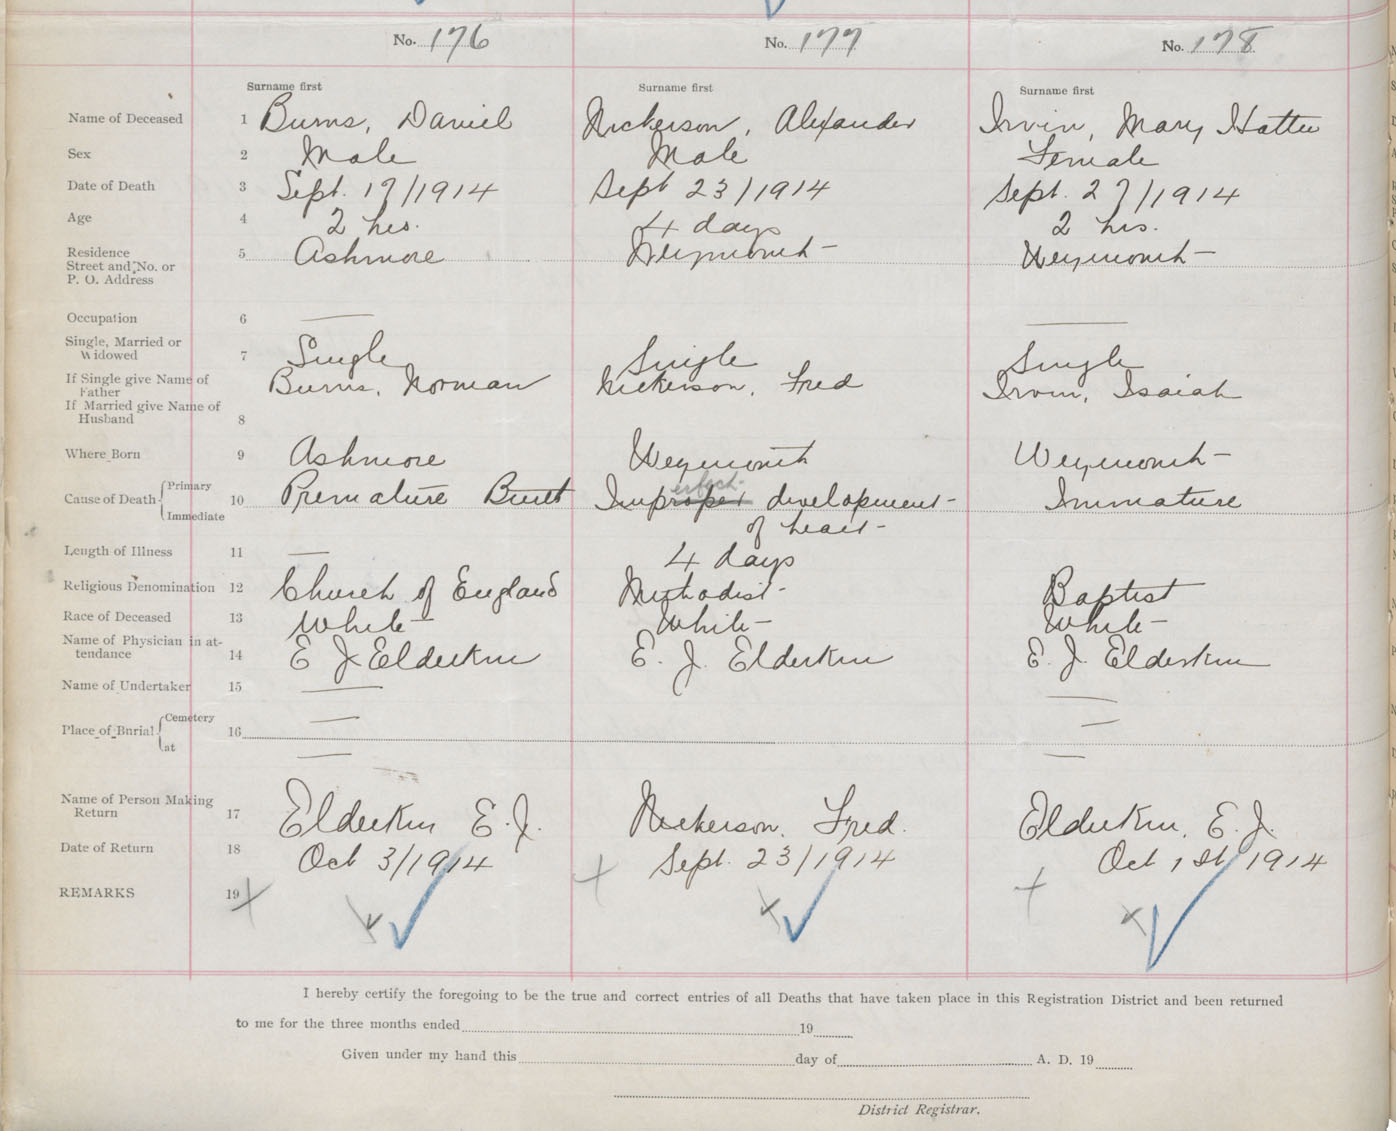 No. 176 No. 177 No. 178
Surname first Surname first Surname first
Name of Deceased 1 Burns, Daniel Nickerson, Alexander Irvin, Mary Hattie
Sex 2 Male Male Female
Date of Death 3 Sept. 17/1914 Sept 23/1914 Sept. 27/1914
Age 4 2 hrs. 4 days 2 hrs.
Residence 5 Ashmore Weymouth Weymouth
Street and No. or
P. O. Address
Occupation 6
Single, Married or
Widowed 7 Single Single Single
If Single give Name of
Father Burns, Norman Nickerson, Fred Irvin, Isaiah
If Married give Name of
Husband 8
Where Born 9 Ashmore Weymouth Weymouth
Cause of Death Primary
10 Premature Birth Improper erfect development Immature
Immediate of heart
Length of Illness 11 — 4 days
Religious Denomination 12 Church of England Methodist Baptist
Race of Deceased 13 White White White
Name of Physician in at-
tendance 14 E J Elderkin E. J. Elderkin E. J. Elderkin
Name of Undertaker 15
Place of Burial Cemetery
16
at
Name of Person Making
Return 17 Elderkin E. J. Nickerson, Fred. Elderkin, E. J.
Date of Return 18 Oct 3/1914 Sept. 23/1914 Oct 1st 1914
REMARKS 19
I hereby certify the foregoing to be the true and correct entries of all Deaths that have taken place in this Registration District and been returned
to me for the three months ended 19
Given under my hand this day of A. D. 19
District Registrar.